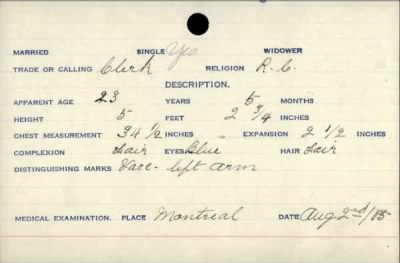 MARRIED SINGLE Yes WIDOWER
TRADE OR CALLING Clerk RELIGION R.C.
DESCRIPTION.
APPARENT AGE 23 YEARS 5 MONTHS
HEIGHT 5 FEET 2 3/4 INCHES
CHEST MEASUREMENT 34 1/2 INCHES EXPANSION 2 1/2 INCHES
COMPLEXION Fair EYES Blue HAIR Fair
DISTINGUISHING MARKS Vacc- left arm
MEDICAL EXAMINATION. PLACE Montreal DATE Aug 2nd/15